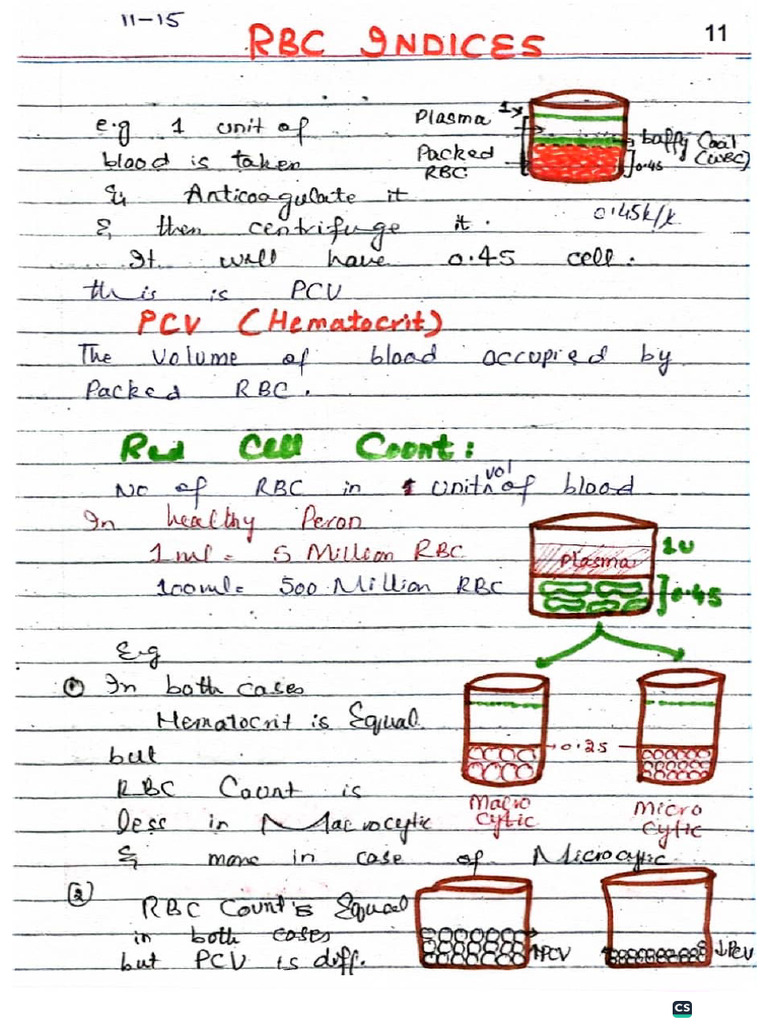 11-15
11
RBC INDICES
e.g 1 unit of
blood is taken
& Anticoagulate it
& then centrifuge it.
It will have 0.45 cell.
this is PCV
Plasma
1x
Packed
RBC
baffy Coat
(WBC)
0.45
PCV (Hematocrit)
The volume of blood occupied by
Packed RBC.
Red Cell Count:
No of RBC in 1 unit vol of blood
In healthy Peron
1 ml = 5 Million RBC
100ml = 500 Million RBC
Plasma
1U
0.45
E.g
① In both cases
Hematocrit is Equal
but
RBC Count is
less in Macrocytic
& more in case of Microcytic
0.25
Macro
cytic
Micro
cytic
② RBC Count is Equal
in both cases
but PCV is diff.
↑PCV
↓PCV
CS